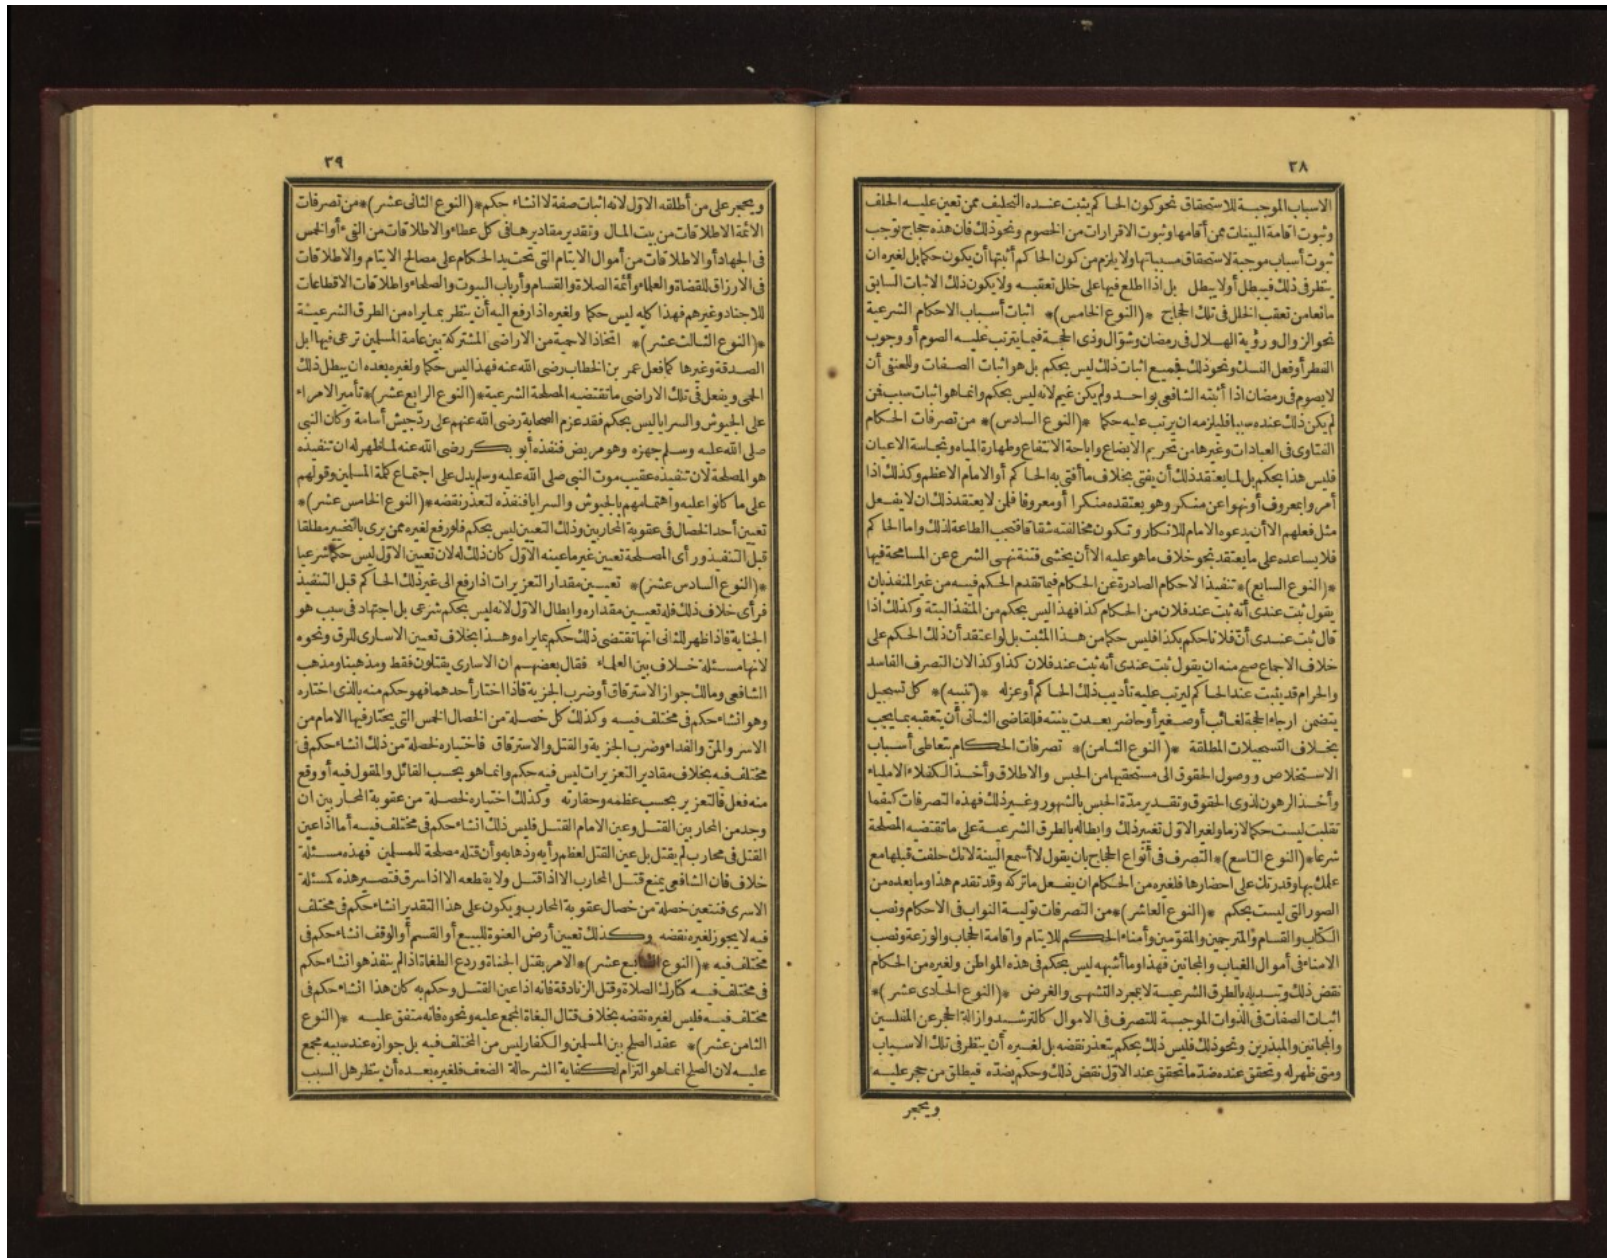 ٣٨
الاسباب الموجبة للاستحقاق نحو كون الحاكم يثبت عنده التحليف ممن تعين عليه الحلف
وثبوت اقامة البينات ممن أقامها وثبوت الاقرارات من الخصوم ونحو ذلك فان هذه حجاج توجب
ثبوت أسباب موجبة لاستحقاق مسبباتها ولا يلزم من كون الحاكم أثبتها أن يكون حكما بل لغيره ان
ينظر فى ذلك فيبطل أولا يبطل بل اذا اطلع فيها على خلل تعقبه ولا يكون ذلك الاثبات السابق
مانعا من تعقب الخلل فى تلك الحجاج *(النوع الخامس)* اثبات أسباب الاحكام الشرعية
نحو الزوال ورؤية الهلال فى رمضان وشوال وذى الحجة فيما يترتب عليه الصوم أو وجوب
الفطر أو فعل النسك ونحو ذلك فجميع اثبات ذلك ليس بحكم بل هو اثبات الصفات وللحنفى أن
لا يصوم فى رمضان اذا أثبته الشافعى بواحد ولم يكن غيم لانه ليس بحكم وانما هو اثبات سبب فمن
لم يكن ذلك عنده سببا فليلزمه ان يرتب عليه حكما *(النوع السادس)* من تصرفات الحكام
الفتاوى فى العبادات وغيرها من تحريم الابضاع واباحة الانتفاع وطهارة المياه ونجاسة الاعيان
فليس هذا بحكم بل لما يعتقد ذلك أن يفتى بخلاف ما أفتى به الحاكم أو الامام الاعظم وكذلك اذا
أمروا بمعروف أو نهوا عن منكر وهو يعتقده منكرا أو معروفا فلمن لا يعتقد ذلك ان لا يفعل
مثل فعلهم الا أن يدعوه الامام للانكار وتكون مخالفته شقاقا فتجب الطاعة لذلك واما الحاكم
فلا يساعده على ما يعتقد نحو خلاف ما هو عليه الا أن يخشى فتنة نهى الشرع عن المسامحة فيها
*(النوع السابع)* تنفيذ الاحكام الصادرة عن الحكام فيما تقدم الحكم فيه من غير المنفذ بان
يقول ثبت عندى أنه ثبت عند فلان من الحكام كذا فهذا ليس بحكم من المنفذ البتة وكذلك اذا
قال ثبت عندى أن فلانا حكم بكذا فليس حكما من هذا المثبت بل لو اعتقد أن ذلك الحكم على
خلاف الاجماع صح منه ان يقول ثبت عندى أنه ثبت عند فلان كذا وكذا لان التصرف الفاسد
والحرام قد يثبت عند الحاكم ليرتب عليه تأديب ذلك الحاكم أو عزله *(تنبيه)* كل تسجيل
يتضمن ارجاء الحجة لغائب أو صغير أو حاضر بعدت بينته فللقاضى الثانى أن يتعقبه بما يجب
بخلاف التسجيلات المطلقة *(النوع الثامن)* تصرفات الحكام بتعاطى أسباب
الاستخلاص ووصول الحقوق الى مستحقيها من الحبس والاطلاق وأخذ الكفلاء الاملياء
وأخذ الرهون لذوى الحقوق وتقدير مدّة الحبس بالشهور وغير ذلك فهذه التصرفات كيفما
تقلبت ليست حكما لازما ولغير الاول تغيير ذلك وابطاله بالطرق الشرعية على ما تقتضيه المصلحة
شرعا *(النوع التاسع)* التصرف فى أنواع الحجاج بان يقول لا أسمع البينة لانك حلفت قبلها مع
علمك بها وقدرتك على احضارها فلغيره من الحكام ان يفعل ما تركه وقد تقدم هذا وما بعده من
الصور التى ليست بحكم *(النوع العاشر)* من التصرفات تولية النواب فى الاحكام ونصب
الكتاب والقسام والمترجمين والمقومين وأمناء الحكم للايتام واقامة الحجاب والوزعة ونصب
الامناء فى أموال الغياب والمجانين فهذا وما أشبهه ليس بحكم فى هذه المواطن ولغيره من الحكام
نقض ذلك وتبديله بالطرق الشرعية لا بمجرد التشهى والغرض *(النوع الحادى عشر)*
اثبات الصفات فى الذوات الموجبة للتصرف فى الاموال كالترشيد وازالة الحجر عن المفلسين
والمجانين والمبذرين ونحو ذلك فليس ذلك بحكم يتعذر نقضه بل لغيره أن ينظر فى تلك الاسباب
ومتى ظهر له وتحقق عنده ضدّ ما تحقق عند الاوّل نقض ذلك وحكم بضدّه فيطلق من حجر عليه
ويحجر
٣٩
ويحجر على من أطلقه الاوّل لانه اثبات صفة لا انشاء حكم *(النوع الثانى عشر)* من تصرفات
الائمة الاطلاقات من بيت المال وتقدير مقاديرها فى كل عطاء والاطلاقات من الفىء أو الخمس
فى الجهاد أو الاطلاقات من أموال الايتام التى تحت يد الحكام على مصالح الايتام والاطلاقات
فى الارزاق للقضاة والعلماء وأئمة الصلاة والقسام وأرباب البيوت والصلحاء واطلاقات الاقطاعات
للاجناد وغيرهم فهذا كله ليس حكما ولغيره اذا رفع اليه أن ينظر بما يراه من الطرق الشرعية
*(النوع الثالث عشر)* اتخاذ الاحمية من الاراضى المشتركة بين عامة المسلمين ترعى فيها ابل
الصدقة وغيرها كما فعل عمر بن الخطاب رضى الله عنه فهذا ليس حكما ولغيره بعده ان يبطل ذلك
الحمى ويفعل فى تلك الاراضى ما تقتضيه المصلحة الشرعية *(النوع الرابع عشر)* تأمير الامراء
على الجيوش والسرايا ليس بحكم فقد عزم الصحابة رضى الله عنهم على ردّ جيش أسامة وكان النبى
صلى الله عليه وسلم جهزه وهو مريض فنفذه أبو بكر رضى الله عنه لما ظهر له ان تنفيذه
هو المصلحة لان تنفيذه عقيب موت النبى صلى الله عليه وسلم يدل على اجتماع كلمة المسلمين وقولهم
على ما كانوا عليه واهتمامهم بالجيوش والسرايا فنفذه لتعذر نقضه *(النوع الخامس عشر)*
تعيين أحد الخصال فى عقوبة المحاربين وذلك التعيين ليس بحكم فلو رفع لغيره ممن يرى بالتخيير مطلقا
قبل التنفيذ ورأى المصلحة تعيين غير ما عينه الاوّل كان ذلك له لان تعيين الاوّل ليس حكما شرعيا
*(النوع السادس عشر)* تعيين مقدار التعزيرات اذا رفع الى غير ذلك الحاكم قبل التنفيذ
فرأى خلاف ذلك فله تعيين مقداره وابطال الاوّل لانه ليس بحكم شرعى بل اجتهاد فى سبب هو
الجناية فاذا ظهر للثانى انها تقتضى ذلك حكم بما يراه وهذا بخلاف تعيين الاسارى للرق ونحوه
لانها مسئلة خلاف بين العلماء فقال بعضهم ان الاسارى يقتلون فقط ومذهبنا ومذهب
الشافعى ومالك جواز الاسترقاق أو ضرب الجزية فاذا اختار أحدهما فهو حكم منه بالذى اختاره
وهو انشاء حكم فى مختلف فيه وكذلك كل خصلة من الخصال الخمس التى يختار فيها الامام من
الاسر والمنّ والفداء وضرب الجزية والقتل والاسترقاق فاختياره لخصلة من ذلك انشاء حكم فى
مختلف فيه بخلاف مقادير التعزيرات ليس فيه حكم وانما هو بحسب القائل والمقول فيه أو وقع
منه فعل فالتعزير بحسب عظمه وحقارته وكذلك اختياره لخصلة من عقوبة المحاربين ان
وجد من المحاربين القتل وعين الامام القتل فليس ذلك انشاء حكم فى مختلف فيه أما اذا عين
القتل فى محارب لم يقتل بل عين القتل لعظم رأيه وذهابه وأن قتله مصلحة للمسلمين فهذه مسئلة
خلاف فان الشافعى يمنع قتل المحارب الا اذا قتل ولا يقطعه الا اذا سرق فتصير هذه كمسئلة
الاسرى فتتعين خصلة من خصال عقوبة المحارب ويكون على هذا التقدير انشاء حكم فى مختلف
فيه لا يجوز لغيره نقضه وكذلك تعيين أرض العنوة للبيع أو القسم أو الوقف انشاء حكم فى
مختلف فيه *(النوع السابع عشر)* الامر بقتل الجناة وردع الطغاة اذا لم ينفذ هو انشاء حكم
فى مختلف فيه كتارك الصلاة وقتل الزنادقة فانه اذا عين القتل وحكم به كان هذا انشاء حكم فى
مختلف فيه فليس لغيره نقضه بخلاف قتال البغاة المجمع عليه ونحوه فانه متفق عليه *(النوع
الثامن عشر)* عقد الصلح بين المسلمين والكفار ليس من المختلف فيه بل جوازه عند سببه مجمع
عليه لان الصلح انما هو التزام لكفاية الشر حالة الضعف فلغيره بعده أن ينظر هل السبب